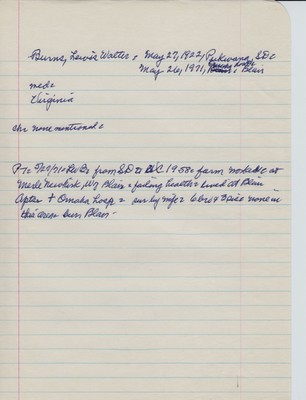 Burns, Lewis Walter, May 27, 1922, Pukwana, SD
May 26, 1971, Blair
med
Virginia
chr none mentioned
PT 5/27/71 from SD to WC 1958 farm worked at
Merle Newkirk, W Blair failing health lived at Blair
Apts + Omaha sur by wife 6 bro 3 sis none in
this area bur Blair